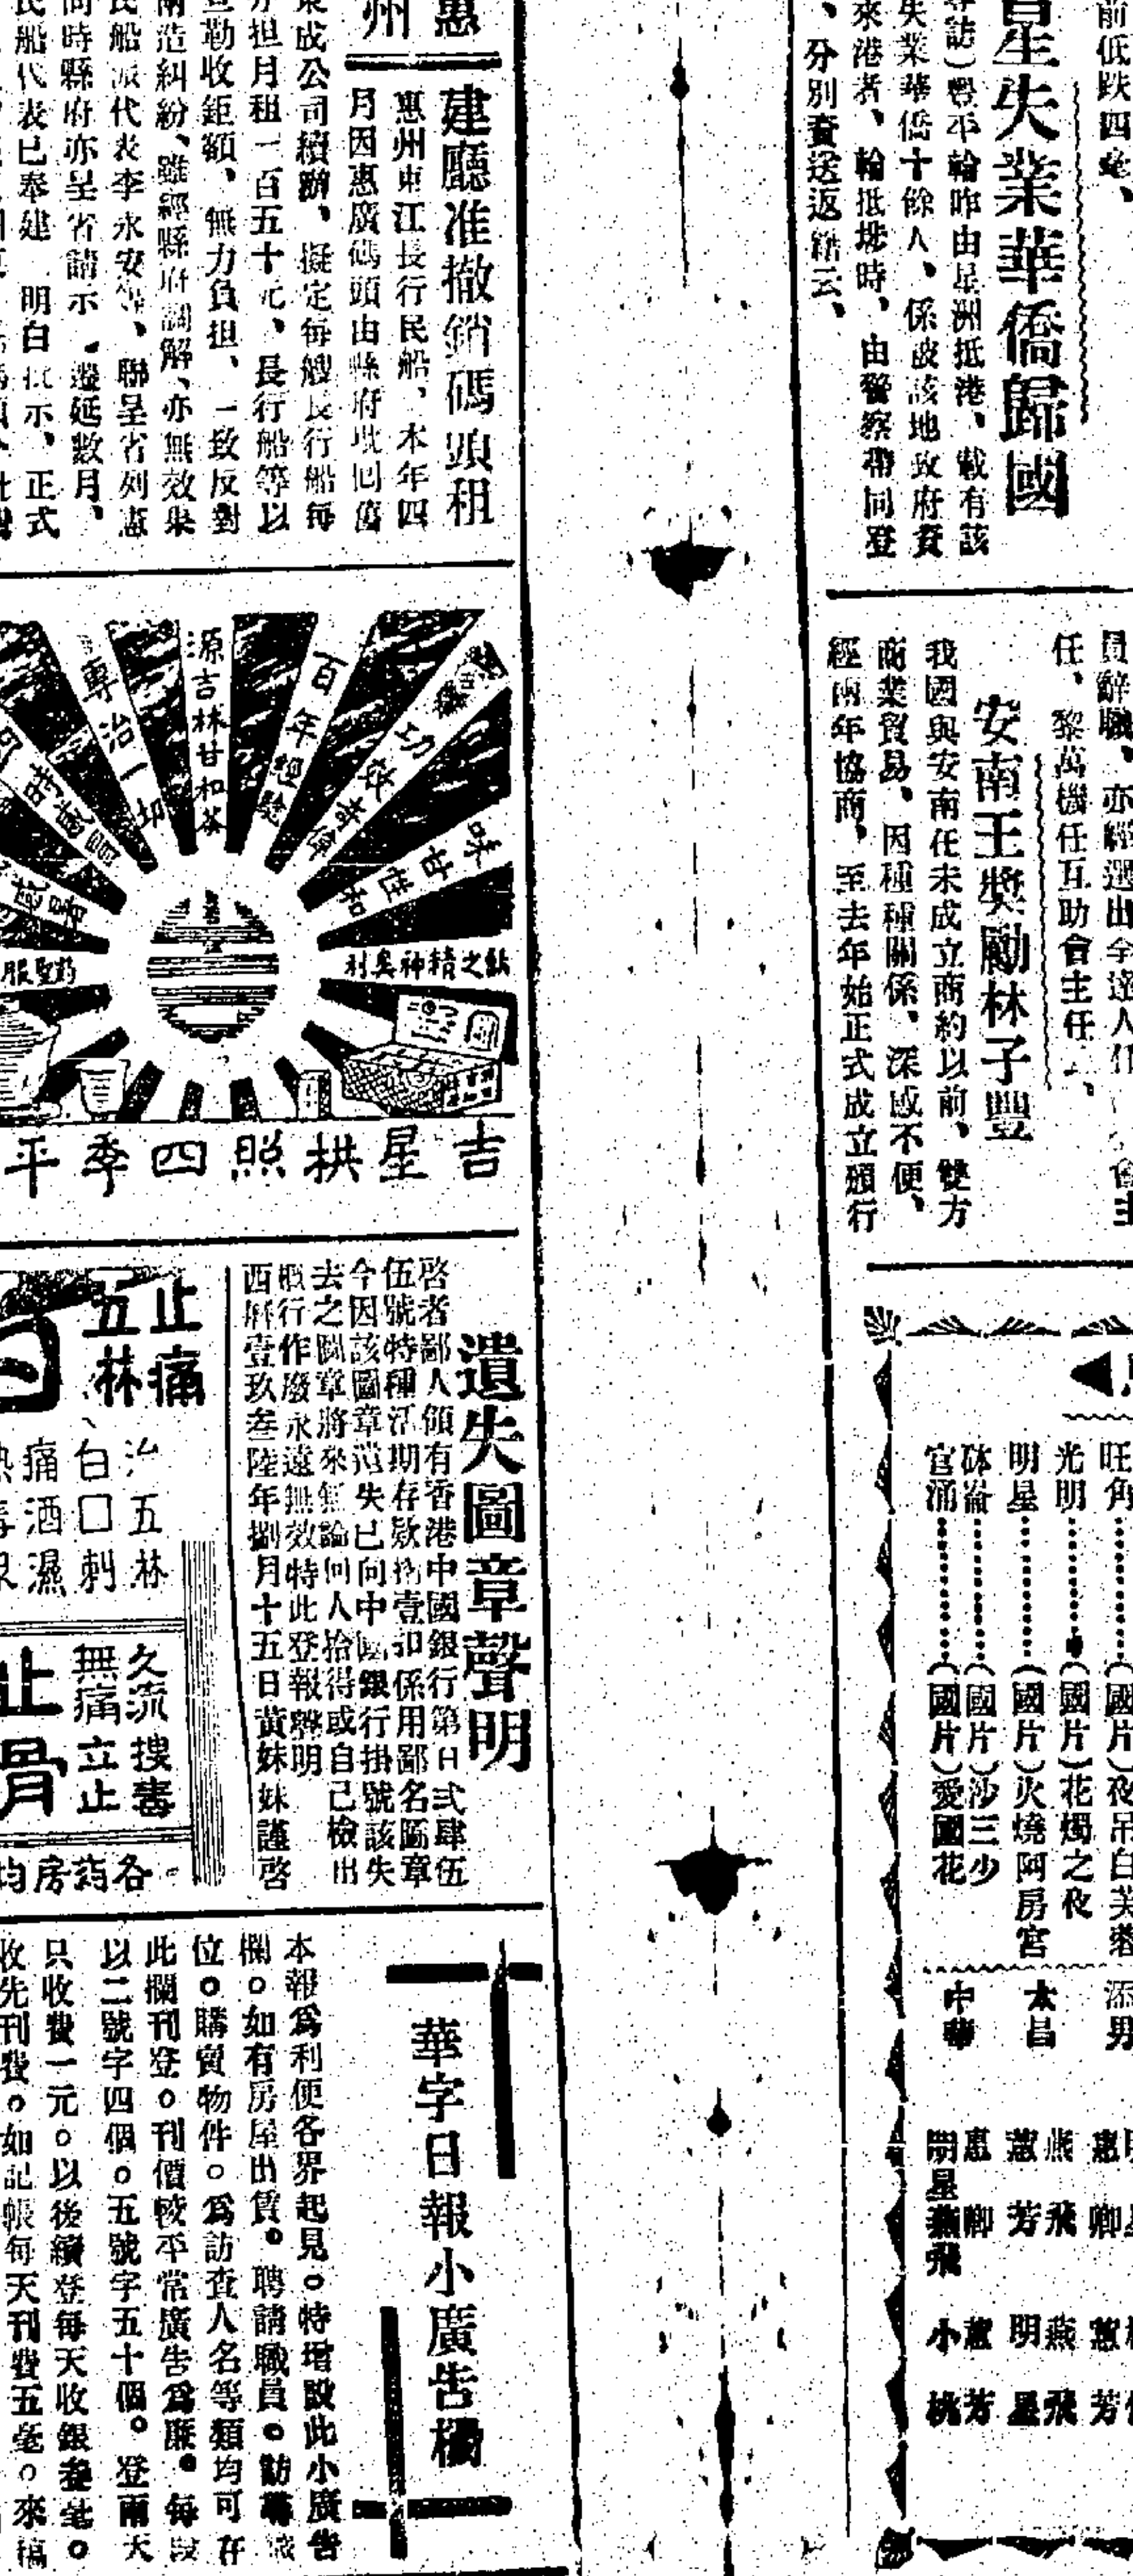 前低跌四毫、
星失業華僑歸國
訪)豐平輪昨由星洲抵港、載有該
失業華僑十餘人、係被該地政府資
來港者、輪抵埗時、由警察帶同登
、分別資送返籍云、
員辭職、亦經選出
任、黎萬機任互助會主任
安南王獎勵林子豐
我國與安南在未成立商約以前、雙方
商業貿易、因種種關係、深感不便、
經兩年協商、至去年始正式成立頒行
旺角………(國片)夜吊白芙蓉
光明………(國片)花燭之夜
明星………(國片)火燒阿房宮
砵崙………(國片)沙三少
官涌………(國片)愛國花
添男
太昌
中華
燕飛
惠芳
明星燕飛
燕飛
明星
小桃
惠州
建廳准撤銷碼頭租
惠州東江長行民船、本年四
月因惠廣碼頭由縣府批回萬
東成公司續辦、擬定每艘長行船每
担月租一百五十元、長行船等以
勒收鉅額、無力負担、一致反對
兩造糾紛、雖經縣府調解、亦無效果
民船派代表李永安等、聯呈省列憲
同時縣府亦呈省請示、遷延數月、
民船代表已奉建 明白批示、正式
味甘性和
功效者偉
百年經驗
源吉林甘和茶
專治一切
時感冒
飲之精神奐利
吉星拱照四季平
遺失圖章聲明
啓者鄙人領有香港中國銀行第H弍肆伍
伍號特種活期存欵摺壹扣係用鄙名圖章
今因該圖章遺失已向中國銀行掛號該失
去之圖章將來無論何人拾得或自己檢出
概行作廢永遠無效特此登報聲明
西曆壹玖叁陸年捌月十五日黃妹妹謹啓
止痛
五林
治五林
白口刺
痛酒濕
久流搜毒
無痛立止
止骨
各葯房均
華字日報小廣告欄
本報爲利便各界起見。特增設此小廣告
欄。如有房屋出賃。聘請職員。
位。購賣物件。爲訪查人名等類均可在
此欄刊登。刊價較平常廣告爲廉。每段
以二號字四個。五號字五十個。登兩天
只收費一元。以後續登每天收銀叁毫。
收先刊費。如記帳每天刊費五毫。來稿